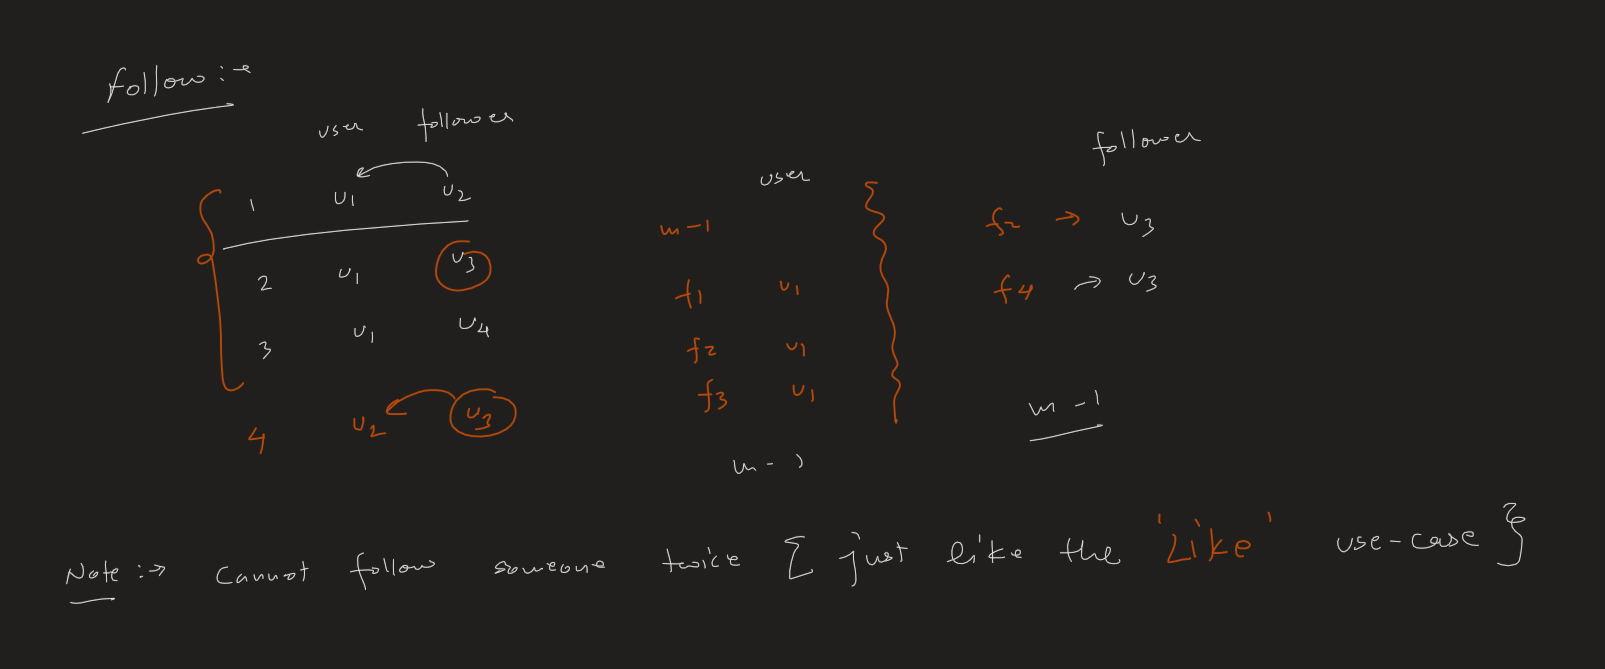 follow :→
user follower
1 u1 u2
2 u1 u3
3 u1 u4
4 u2 u3
user
m-1
f1 u1
f2 u1
f3 u1
m-1
follower
f2 → u3
f4 → u3
m-1
Note :→ Cannot follow someone twice [ just like the 'Like' use-case }